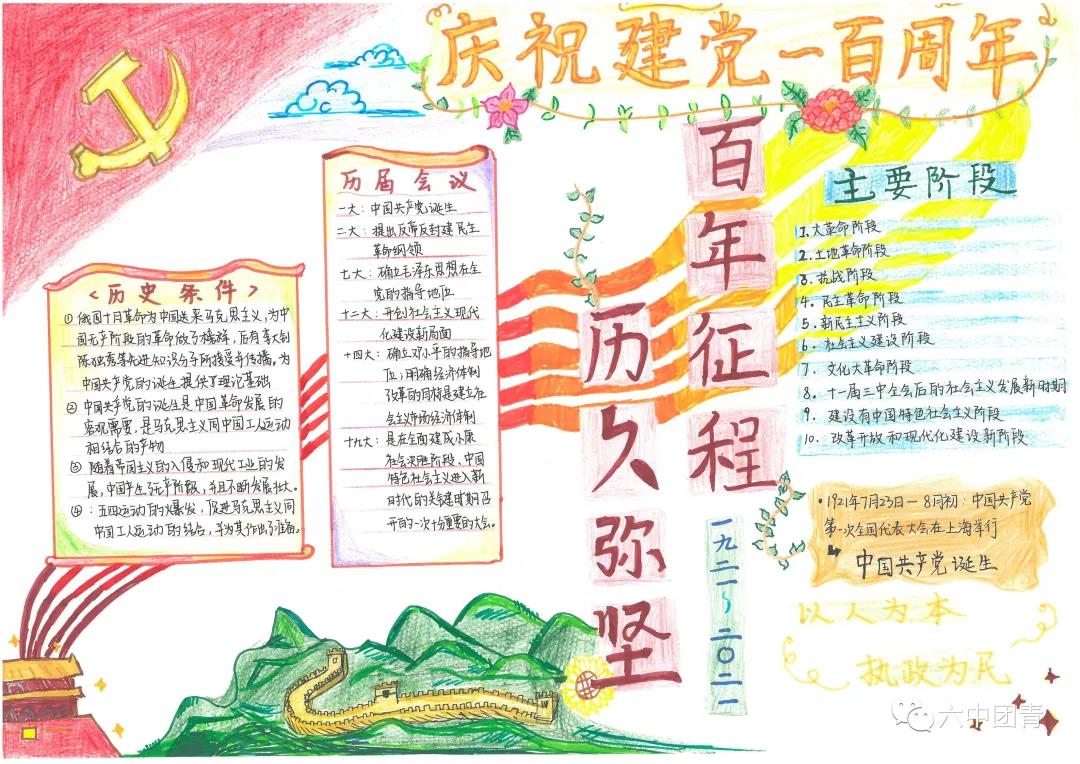 庆祝建党一百周年
百年征程
历久弥坚
一九二一~二〇二一
<历史条件>
①俄国十月革命为中国送来马克思主义,为中
国无产阶级的革命做了旗帜,后有李大钊
陈独秀等先进知识分子所接受并传播,为
中国共产党的诞生提供了理论基础
②中国共产党的诞生是中国革命发展的
客观需要,是马克思主义同中国工人运动
相结合的产物
③随着帝国主义的入侵和现代工业的发
展,中国产生无产阶级,并且不断发展壮大。
④:五四运动的爆发,促进马克思主义同
中国工人运动的结合,并为其作出了准备。
历届会议
一大:中国共产党诞生
二大:提出反帝反封建民主
革命纲领
七大:确立毛泽东思想在全
党的指导地位
十二大:开创社会主义现代
化建设新局面
十四大:确立邓小平的指导地
位;用确经济体制
改革的目标是建立在
会主市场经济体制
十九大:是在全面建成小康
社会决胜阶段、中国
特色社会主义进入新
时代的关键时期召
开的一次十分重要的大会。
主要阶段
1.大革命阶段
2.土地革命阶段
3.抗战阶段
4.民主革命阶段
5.新民主主义阶段
6.社会主义建设阶段
7.文化大革命阶段
8.十一届三中全会后的社会主义发展新时期
9.建设有中国特色社会主义阶段
10.改革开放和现代化建设新阶段
·1921年7月23日—8月初:中国共产党
第一次全国代表大会在上海举行
中国共产党诞生
以人为本
执政为民
六中团青